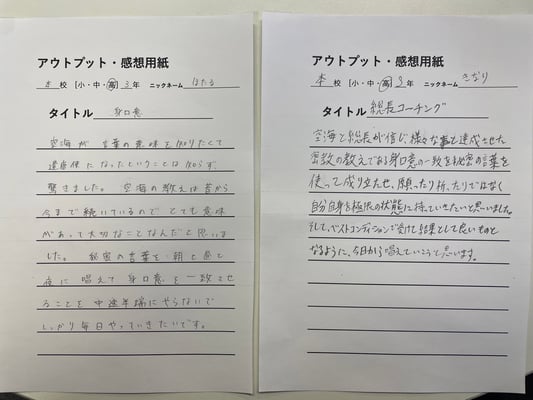 アウトプット・感想用紙
本 校 [小・中・高] 3 年 ニックネーム ほたる
タイトル 身口意
空海が 言葉の意味を知りたくて
遣唐使になったということは知らず、
驚きました。空海の教えは昔から
今まで続いているので とても意味
があって大切なことなんだと思いま
した。秘密の言葉を 朝と昼と
夜に 唱えて 身口意を 一致させ
ることを 中途半端にやらないで
しっかり毎日やっていきたいです。
アウトプット・感想用紙
本 校 [小・中・高] 3 年 ニックネーム きなり
タイトル 総長コーチング
空海と総長が信じ、様々な事を達成させた
密教の教えである身口意の一致を秘密の言葉を
使って成り立たせ、願ったり祈ったりではなく
自分自身を極限の状態に持っていきたいと思いました。
そして、ベストコンディションで受けて結果として良いものと
なるように、今日から唱えていこうと思います。